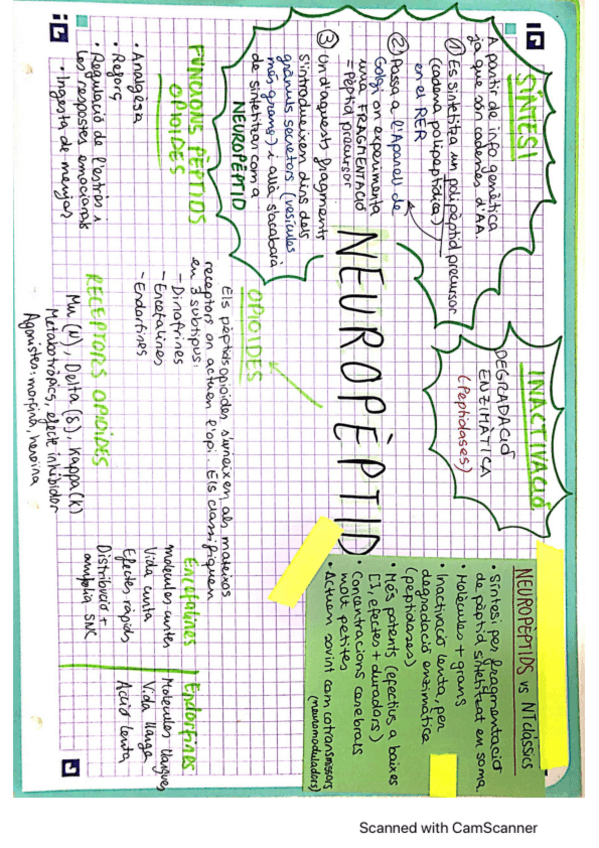 NEUROPÈPTID
SÍNTESI
A partir de info genètica
ja que són cadenes d'AA.
① Es sintetitza un polipèptid precursor
(cadena polipeptídica)
en el RER
② Passa a l'Aparell de
Golgi on experimenta
una FRAGMENTACIÓ
= Pèptid precursor
③ Un d'aquests fragments
s'introdueixen dins dels
grànuls secretors (vesícules
més grans) i allà s'acabarà
de sintetitzar com a
NEUROPÈPTID
INACTIVACIÓ
DEGRADACIÓ
ENZIMÀTICA
(Peptidases)
NEUROPÈPTIDS vs NT clàssics
• Síntesi per fragmentació
de pèptid sintetitzat en soma
• Molècules + grans
• Inactivació lenta, per
degradació enzimàtica
(peptidases)
• Més potents (efectius a baixes
[], efectes + duradors)
• Concentracions cerebrals
molt petites
• Actuen sovint com cotransmissors
(neuromoduladors)
OPIOIDES
Els pèptids opioides s'uneixen als mateixos
receptors on actuen l'opi. Els classifiquen
en 3 subtipus:
- Dinorfines
- Encefalines
- Endorfines
FUNCIONS PÈPTIDS
OPIOIDES
• Analgèsia
• Reforç
• Regulació de l'estrés i
les respostes emocionals
• Ingesta de menjar
RECEPTORS OPIOIDES
Mu (μ), Delta (δ), Kappa (K)
Metabotròpics, efecte inhibidor
Agonistes: morfina, heroïna
Encefalines
molècules curtes
Vida curta
Efectes ràpids
Distribució +
amplia SNC
Endorfines
Molècules llargues
Vida llarga
Acció lenta
Scanned with CamScanner